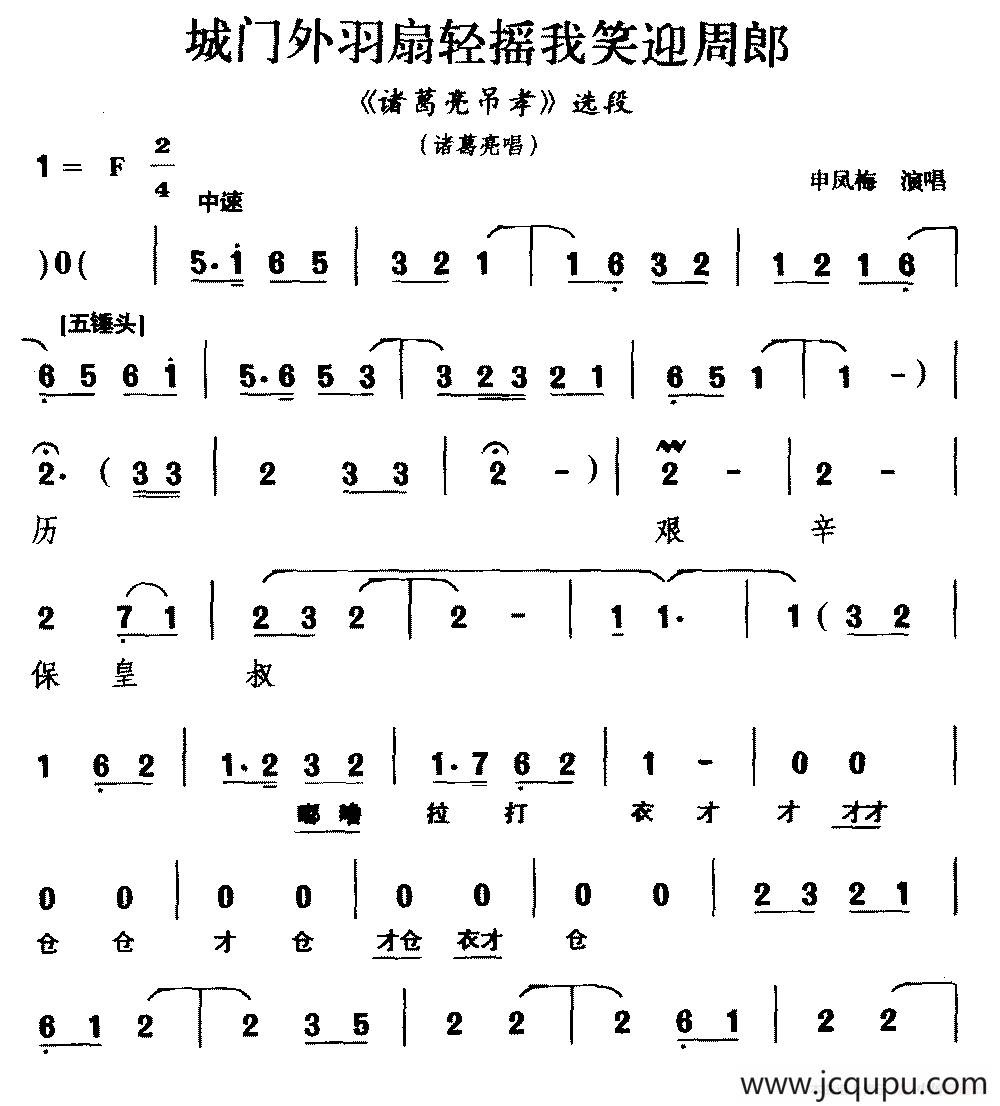 城门外羽扇轻摇我笑迎周郎
《诸葛亮吊孝》选段
(诸葛亮唱)
1 = F 2/4
中速
申凤梅 演唱
)0( | 5. i 6 5 | 3 2 1 | 1 6 3 2 | 1 2 1 6 |
[五锤头]
6 5 6 i | 5. 6 5 3 | 3 2 3 2 1 | 6 5 1 | 1 - ) |
2. ( 3 3 | 2 3 3 | 2 - ) | 2 - | 2 - |
历 艰 辛
2 7 1 | 2 3 2 | 2 - | 1 1. | 1 ( 3 2 |
保 皇 叔
1 6 2 | 1. 2 3 2 | 1. 7 6 2 | 1 - | 0 0 |
嘟 拉 打 衣 才 才 才才
0 0 | 0 0 | 0 0 | 0 0 | 2 3 2 1 |
仓 仓 才 仓 才仓 衣才 仓
6 1 2 | 2 3 5 | 2 2 | 2 6 1 | 2 2 |
www.jcqupu.com